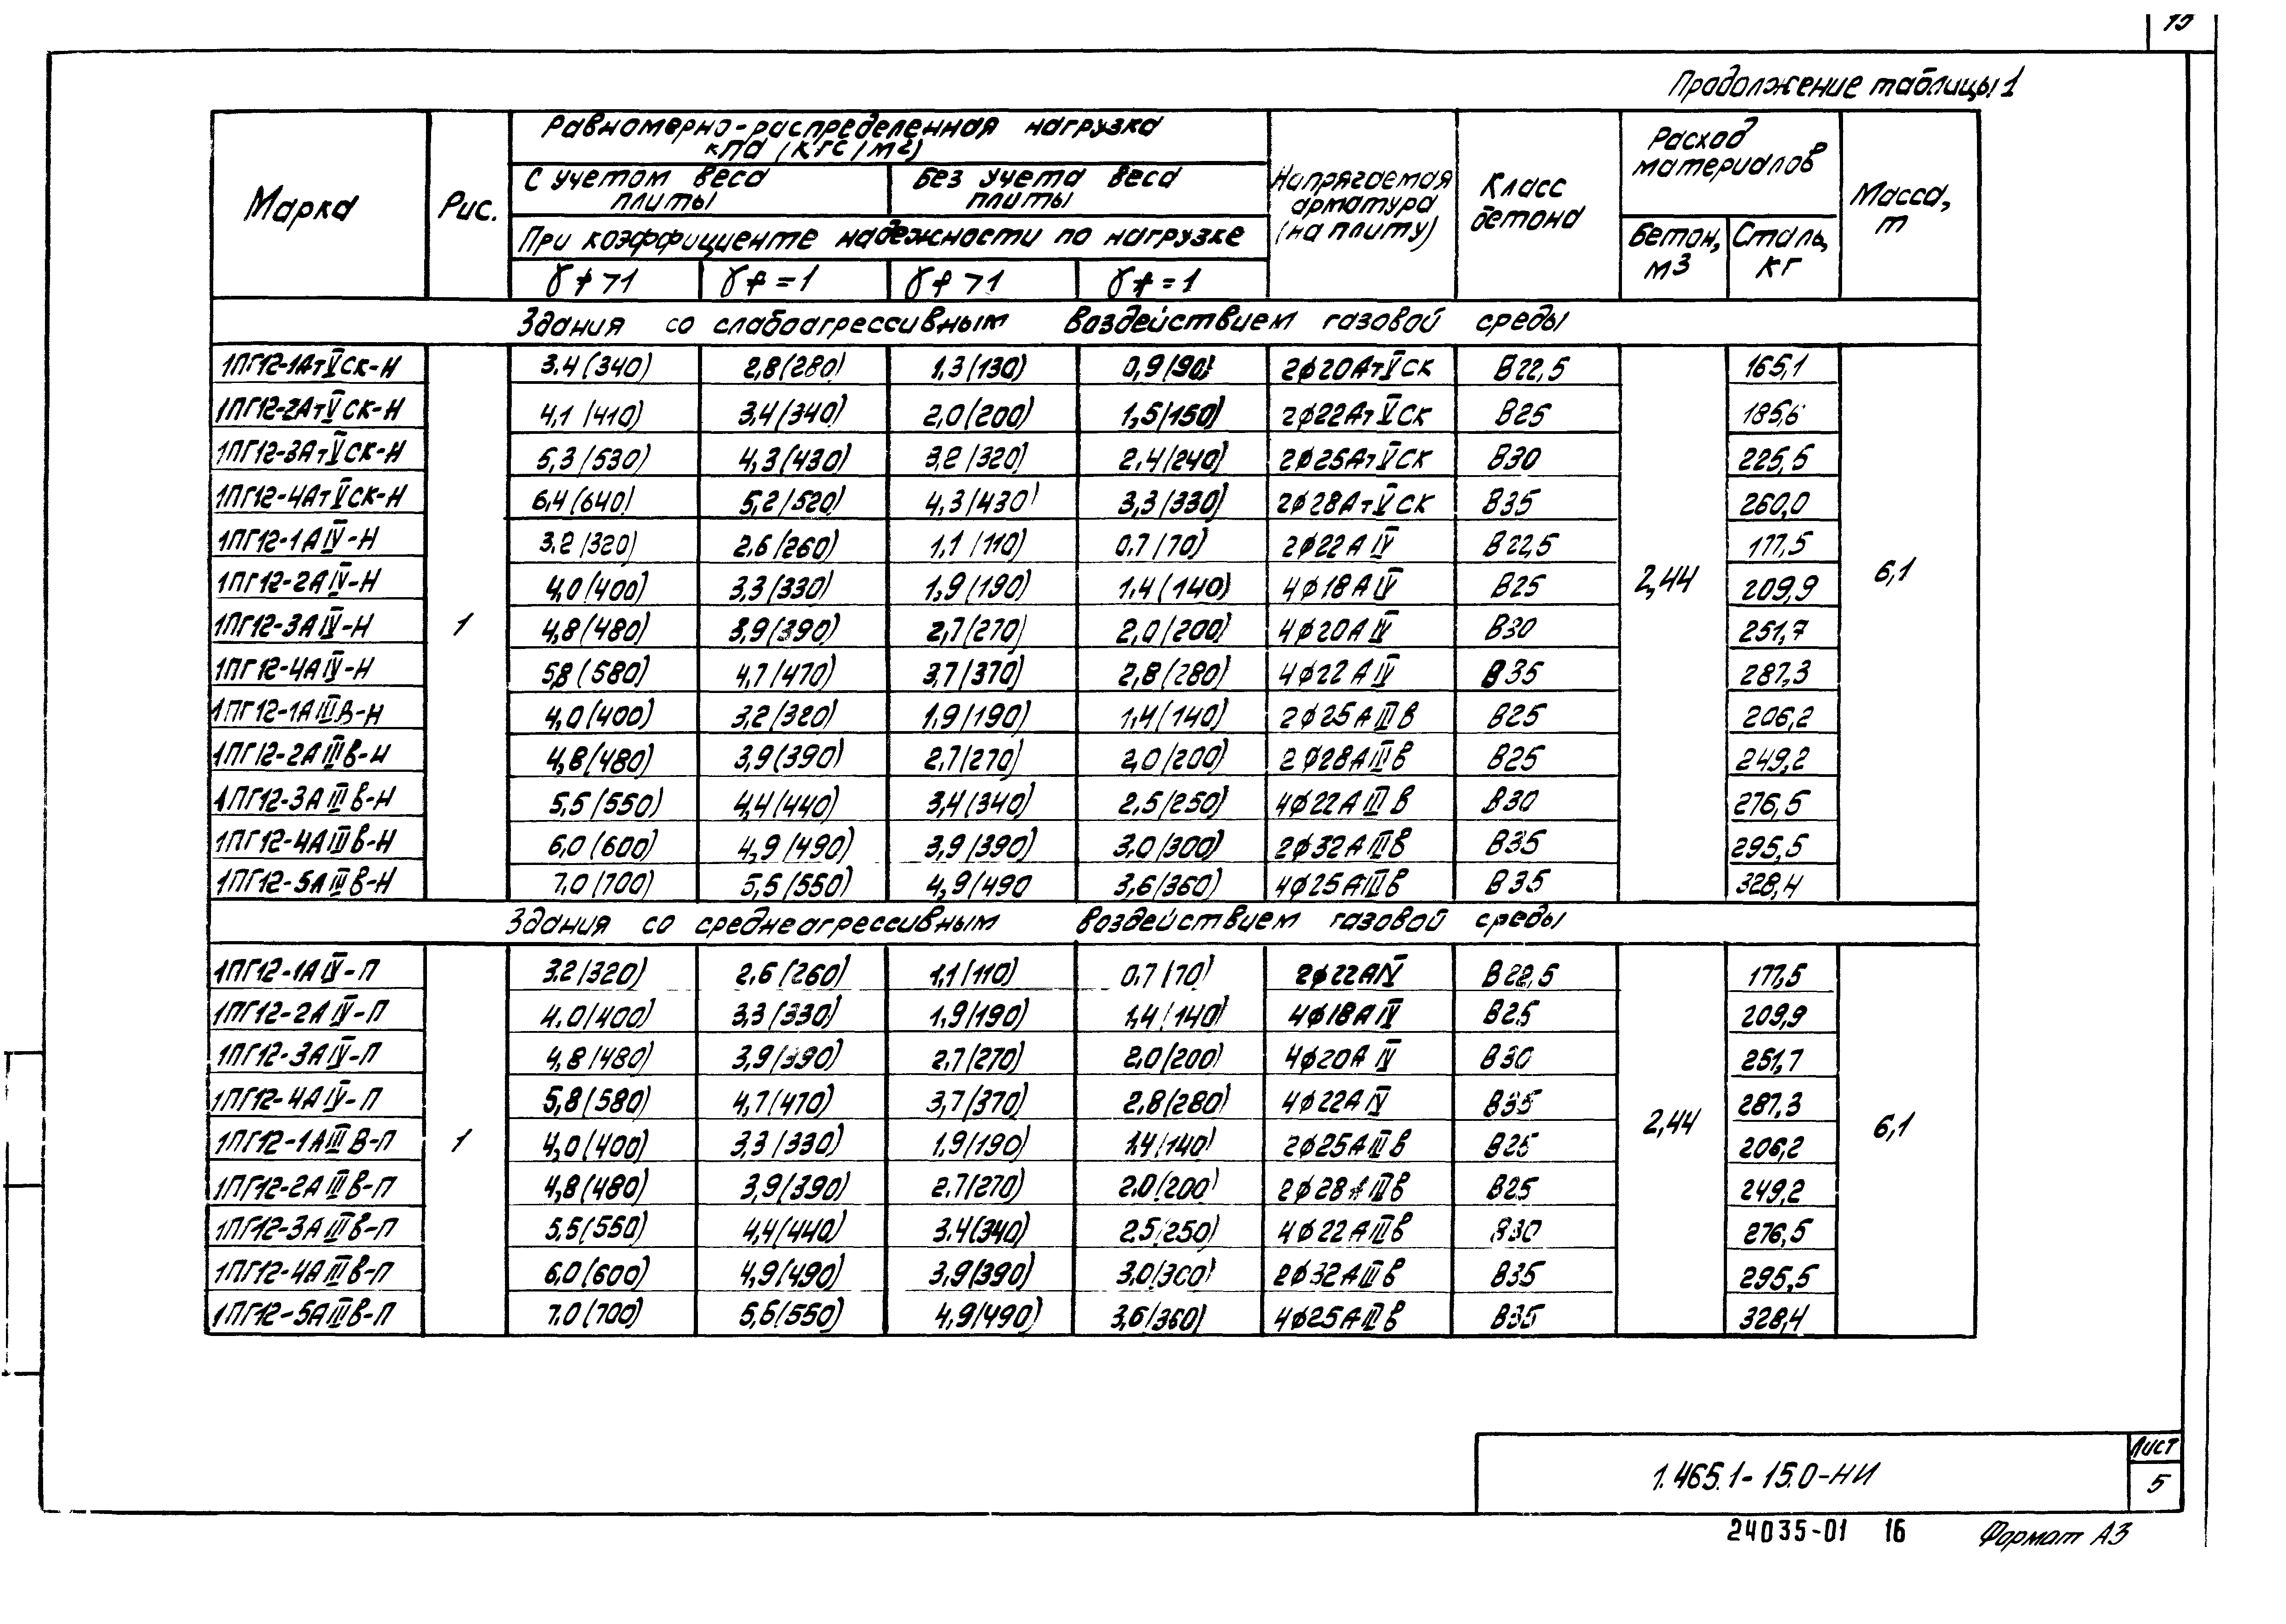 15
Продолжение таблицы 1
Марка
Рис.
Равномерно-распределенная нагрузка
кПа (кгс/м2)
С учетом веса
плиты
Без учета веса
плиты
При коэффициенте надежности по нагрузке
γf >1 γf =1 γf >1 γf =1
Напрягаемая
арматура
(на плиту)
Класс
бетона
Расход
материалов
Бетон,
м3
Сталь,
кг
Масса,
т
Здания со слабоагрессивным воздействием газовой среды
1ПГ12-1АтVСК-Н 3,4(340) 2,8(280) 1,3(130) 0,9(90) 2φ20АтVСК В22,5 165,1
1ПГ12-2АтVСК-Н 4,1(410) 3,4(340) 2,0(200) 1,5(150) 2φ22АтVСК В25 185,6
1ПГ12-3АтVСК-Н 5,3(530) 4,3(430) 3,2(320) 2,4(240) 2φ25АтVСК В30 225,5
1ПГ12-4АтVСК-Н 6,4(640) 5,2(520) 4,3(430) 3,3(330) 2φ28АтVСК В35 260,0
1ПГ12-1АIV-Н 3,2(320) 2,6(260) 1,1(110) 0,7(70) 2φ22АIV В22,5 177,5
1ПГ12-2АIV-Н 4,0(400) 3,3(330) 1,9(190) 1,4(140) 4φ18АIV В25 2,44 209,9 6,1
1ПГ12-3АIV-Н 1 4,8(480) 3,9(390) 2,7(270) 2,0(200) 4φ20АIV В30 251,7
1ПГ12-4АIV-Н 5,8(580) 4,7(470) 3,7(370) 2,8(280) 4φ22АIV В35 287,3
1ПГ12-1АIIIв-Н 4,0(400) 3,2(320) 1,9(190) 1,4(140) 2φ25АIIIв В25 206,2
1ПГ12-2АIIIв-Н 4,8(480) 3,9(390) 2,7(270) 2,0(200) 2φ28АIIIв В25 249,2
1ПГ12-3АIIIв-Н 5,5(550) 4,4(440) 3,4(340) 2,5(250) 4φ22АIIIв В30 276,5
1ПГ12-4АIIIв-Н 6,0(600) 4,9(490) 3,9(390) 3,0(300) 2φ32АIIIв В35 295,5
1ПГ12-5АIIIв-Н 7,0(700) 5,5(550) 4,9(490 3,6(360) 4φ25АIIIв В35 328,4
Здания со среднеагрессивным воздействием газовой среды
1ПГ12-1АIV-П 3,2(320) 2,6(260) 1,1(110) 0,7(70) 2φ22АIV В22,5 177,5
1ПГ12-2АIV-П 4,0(400) 3,3(330) 1,9(190) 1,4(140) 4φ18АIV В25 209,9
1ПГ12-3АIV-П 4,8(480) 3,9(390) 2,7(270) 2,0(200) 4φ20АIV В30 251,7
1ПГ12-4АIV-П 5,8(580) 4,7(470) 3,7(370) 2,8(280) 4φ22АIV В35 287,3
1ПГ12-1АIIIв-П 1 4,0(400) 3,3(330) 1,9(190) 1,4(140) 2φ25АIIIв В25 2,44 206,2 6,1
1ПГ12-2АIIIв-П 4,8(480) 3,9(390) 2,7(270) 2,0(200) 2φ28АIIIв В25 249,2
1ПГ12-3АIIIв-П 5,5(550) 4,4(440) 3,4(340) 2,5(250) 4φ22АIIIв В30 276,5
1ПГ12-4АIIIв-П 6,0(600) 4,9(490) 3,9(390) 3,0(300) 2φ32АIIIв В35 295,5
1ПГ12-5АIIIв-П 7,0(700) 5,5(550) 4,9(490) 3,6(360) 4φ25АIIIв В35 328,4
1.465.1-15.0-НИ
Лист
5
24035-01 16 Формат А3